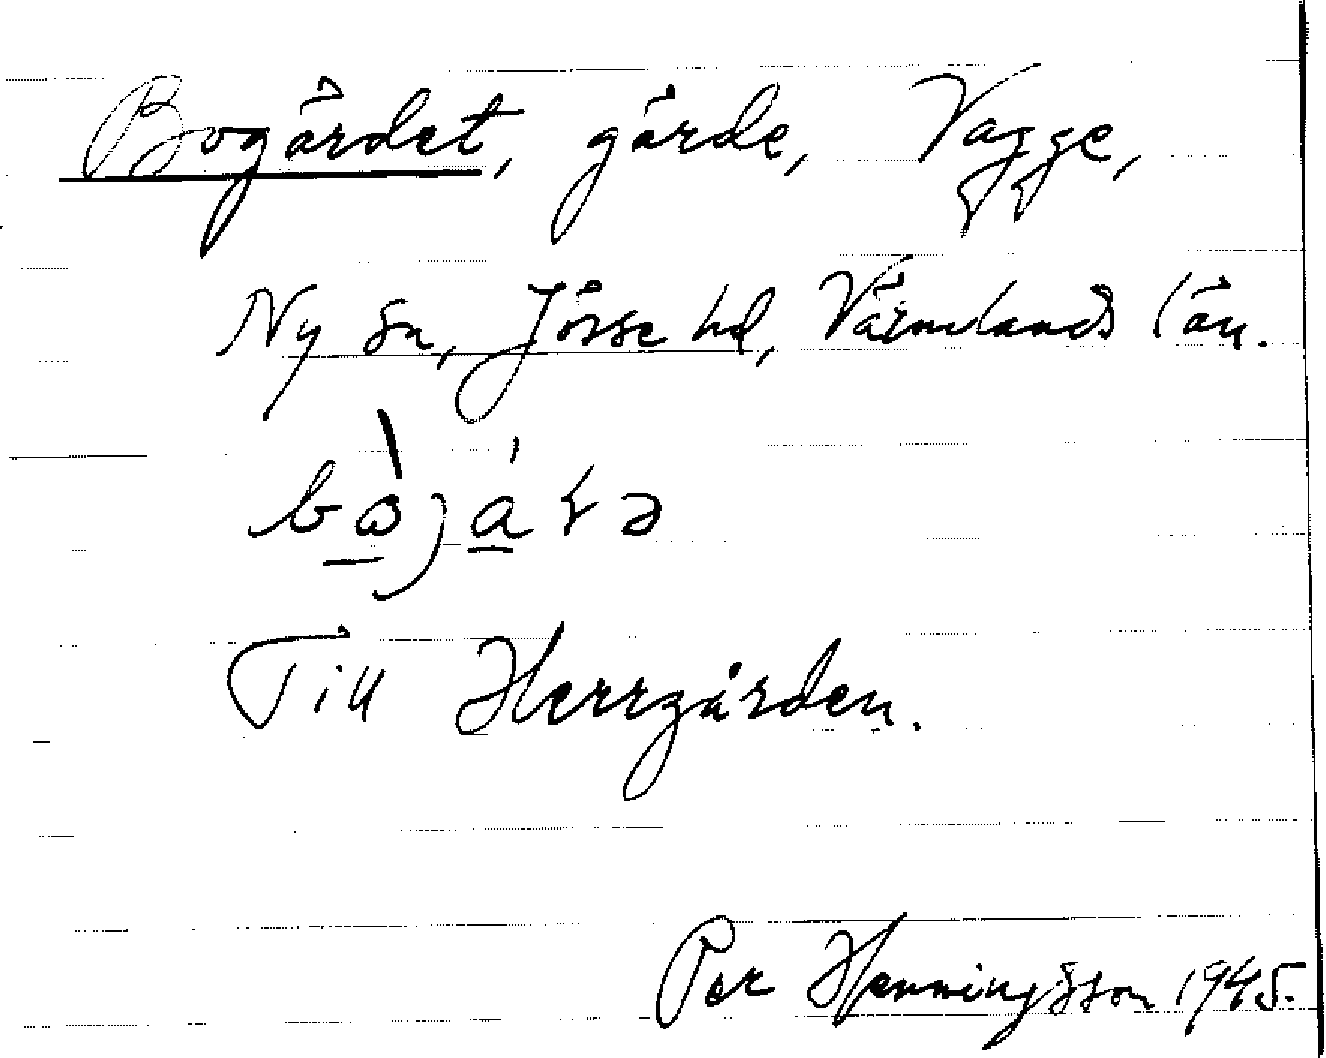 Bogärdet, gärde, Vagge,
Ny sn, Jösse hd, Värmlands län.
Till Herrgården.
Per Henningsson 1945.